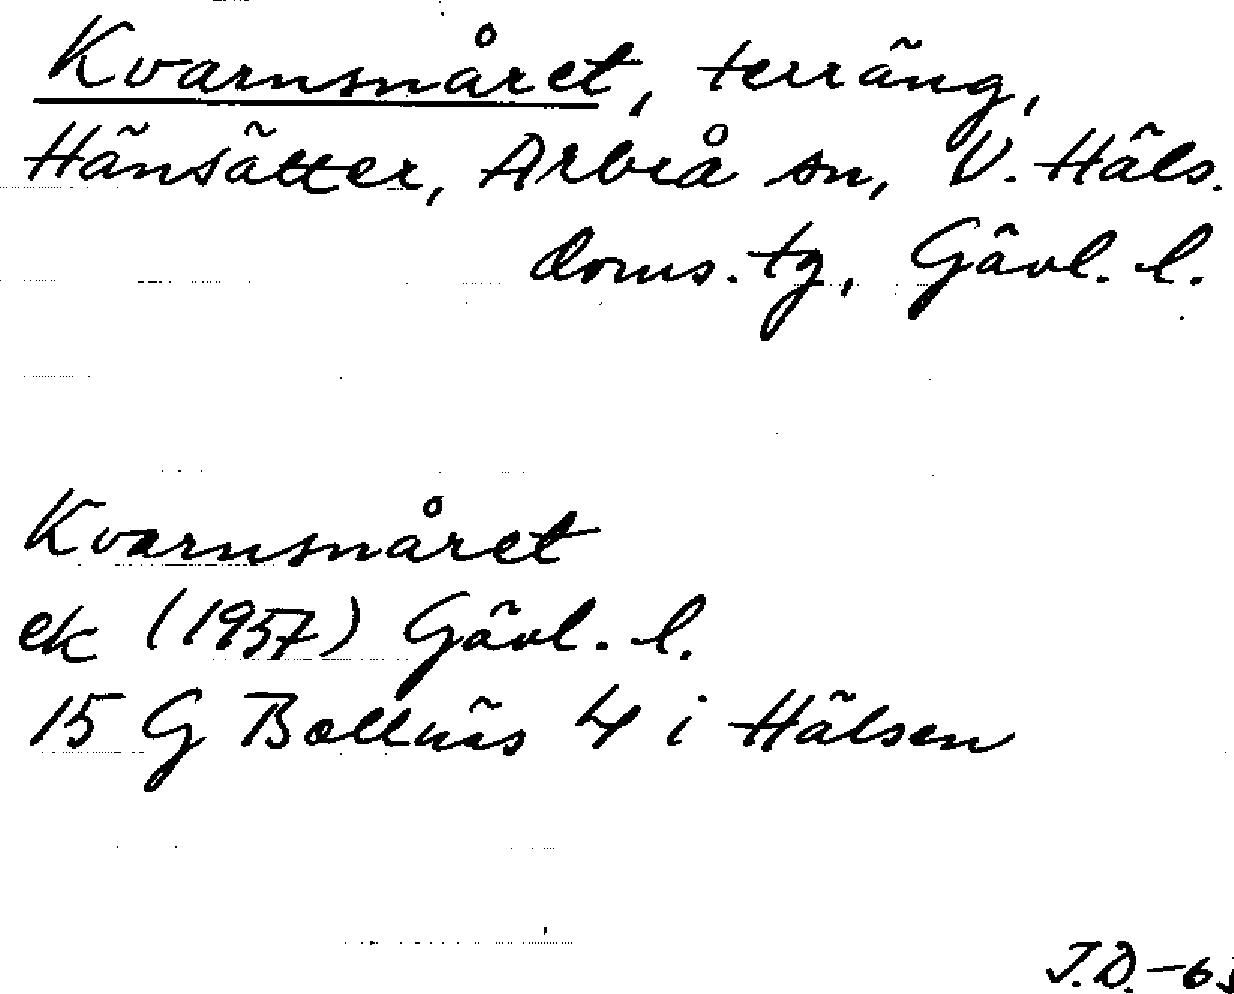 Kvarnsnåret, terräng,
Hänsätter, Arbrå sn, V. Häls.
doms. tg, Gävl. l.
Kvarnsnåret
ek (1957) Gävl. l.
15 G Bollnäs 4 i Hälsen
J.D.